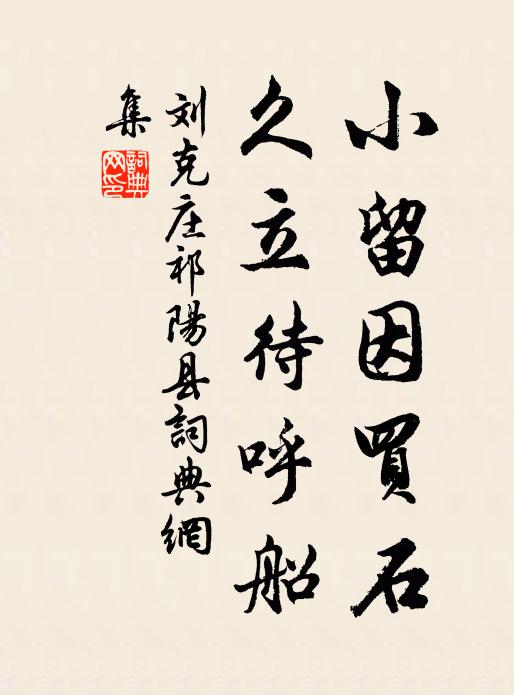 小留因買石
久立待呼船
刘克庄祁陽县詞典網
集
詞典
网印